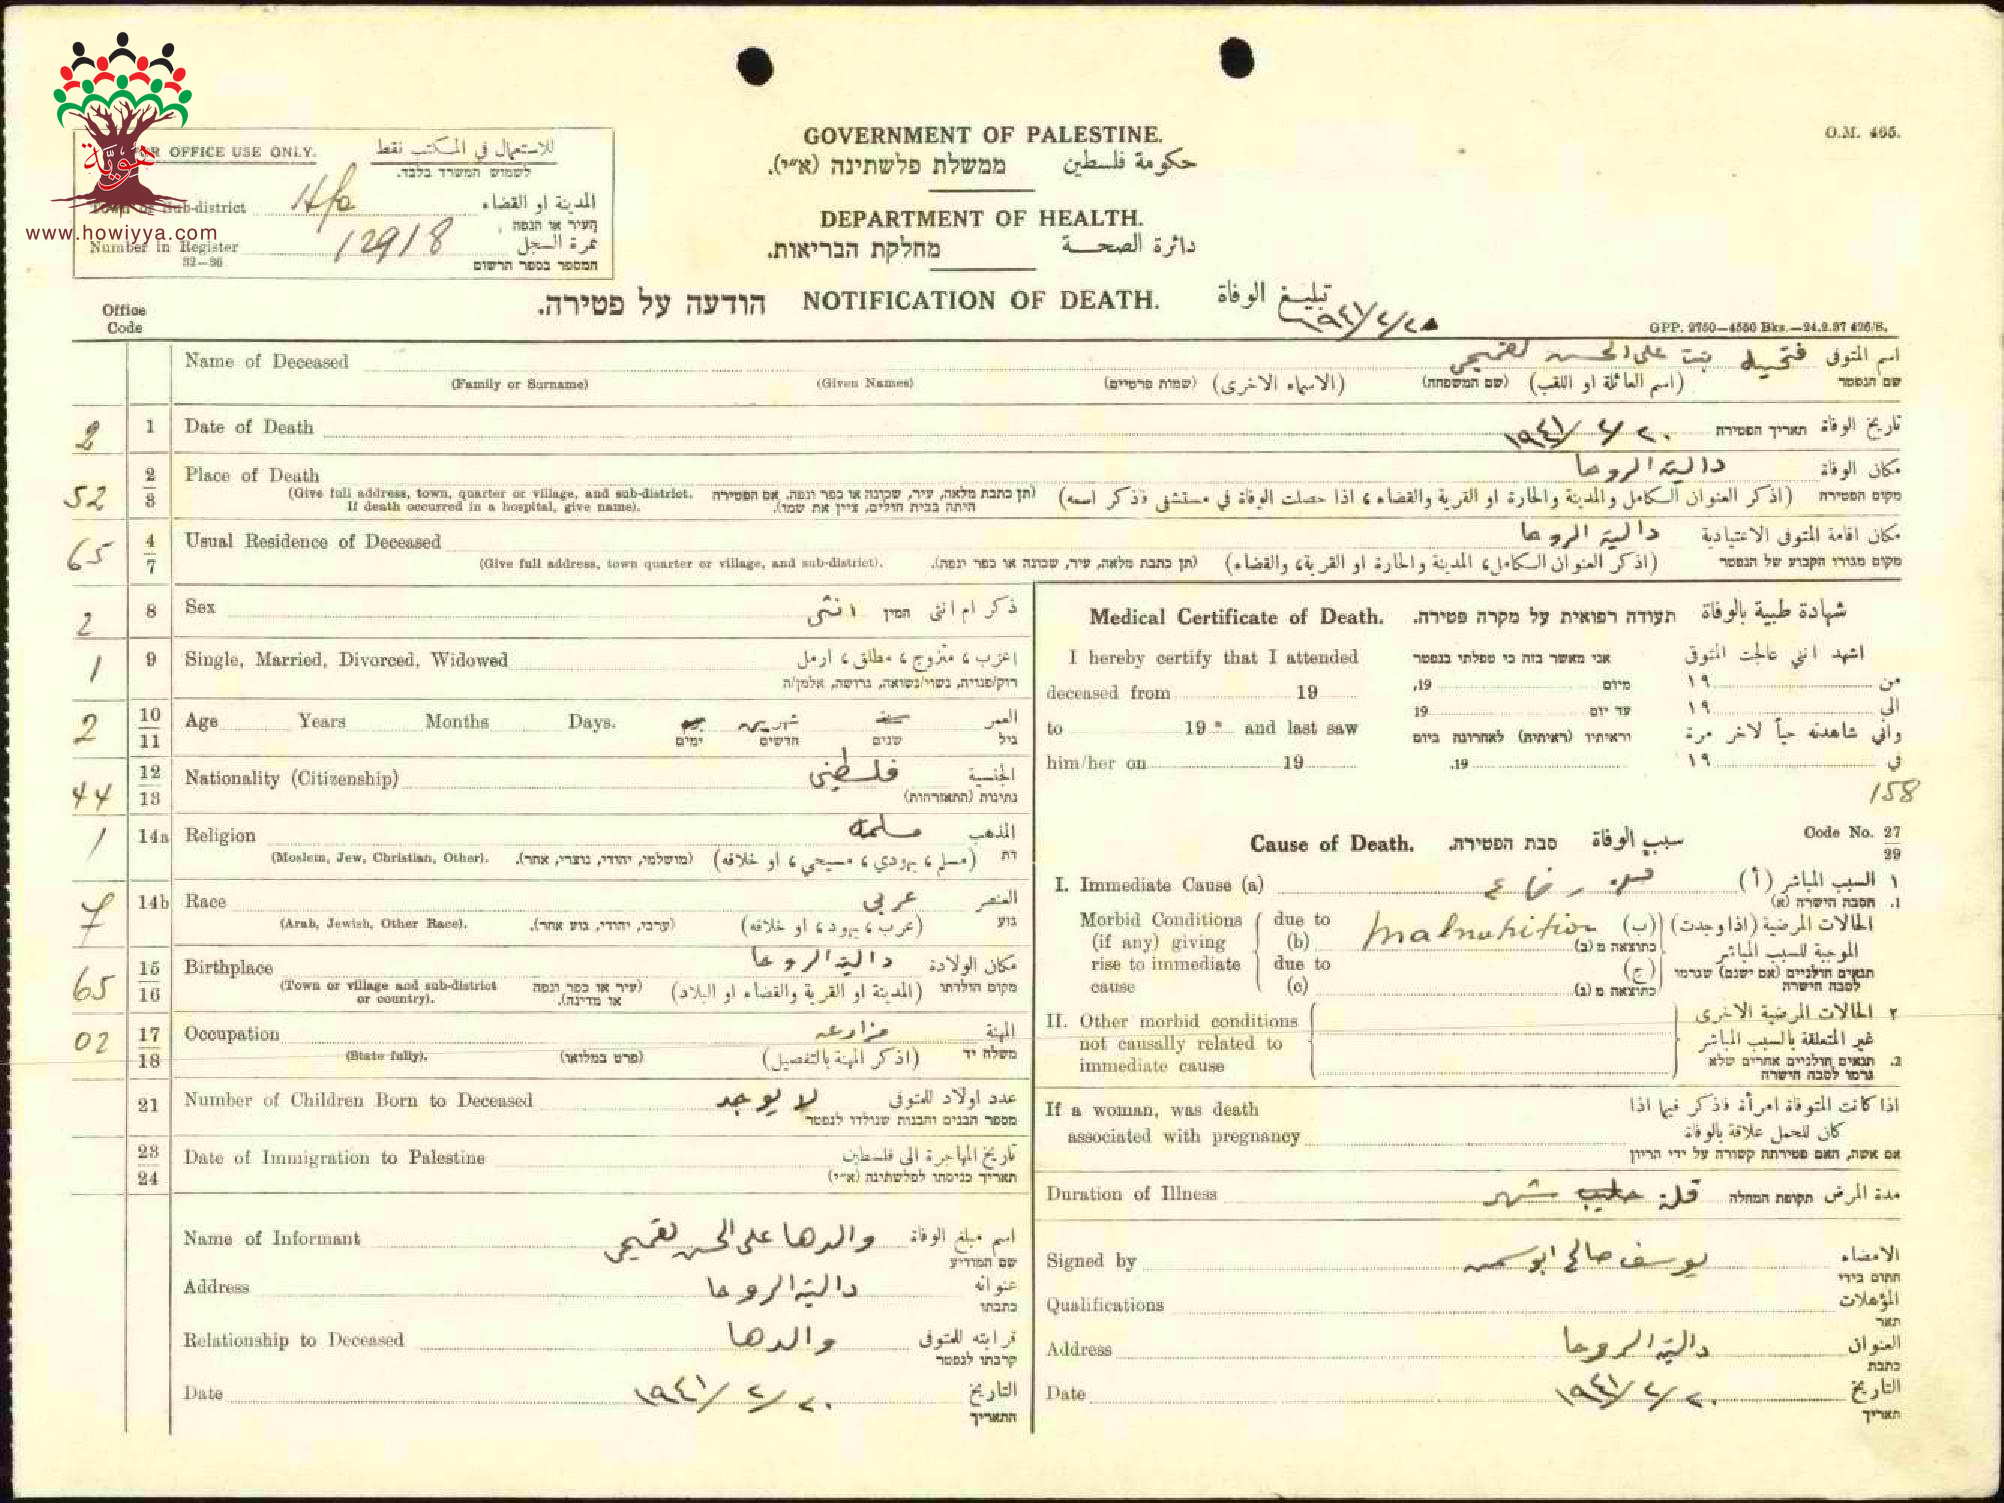 هويّة
www.howiyya.com
O.M. 465.
FOR OFFICE USE ONLY. للاستعمال في المكتب نقط
לשמוש המשרד בלבד.
Town or Sub-district Hfa المدينة او القضاء
העיר או הנפה
Number in Register 12918 نمرة السجل
32—36 המספר בספר הרשום
GOVERNMENT OF PALESTINE.
ממשלת פלשתינה (א״י). حكومة فلسطين
DEPARTMENT OF HEALTH.
מחלקת הבריאות. دائرة الصحة
הודעה על פטירה. NOTIFICATION OF DEATH. تبليغ الوفاة
GPP. 9750—4550 Bks.—24.2.37 426/S.
Office
Code
Name of Deceased فتحيه بنت على الحسن اسم المتوفى
(Family or Surname) (Given Names) (שמות פרטיים) (الاسماء الاخرى) (שם המשפחה) (اسم العائلة او اللقب) שם הנפטר
2 1 Date of Death ٢٠/٢/١٩٤١ תאריך הפטירה تاريخ الوفاة
52 2/3 Place of Death دالية الروحا مكان الوفاة
(Give full address, town, quarter or village, and sub-district. If death occurred in a hospital, give name). (תן כתבת מלאה, עיר, שכונה או כפר ונפה. אם הפטירה היתה בבית חולים, ציין את שמו). (اذكر العنوان الكامل والمدينة والحارة او القرية والقضاء ، اذا حصلت الوفاة في مستشفى فذكر اسمه) מקום הפטירה
65 4/7 Usual Residence of Deceased دالية الروحا مكان اقامة المتوفى الاعتيادية
(Give full address, town quarter or village, and sub-district). (תן כתבת מלאה, עיר, שכונה או כפר ונפה). (اذكر العنوان الكامل، المدينة والحارة او القرية، والقضاء) מקום מגוריו הקבוע של הנפטר
2 8 Sex انثى המין ذكر ام انثى
1 9 Single, Married, Divorced, Widowed اعزب ، متزوج ، مطلق ، ارمل
רוק/פנויה, נשוי/נשואה, גרושה, אלמן/ה
2 10/11 Age Years Months Days. شهرين العمر
ימים חדשים שנים גיל
44 12/13 Nationality (Citizenship) فلسطيني الجنسية
נתינות (התאזרחות)
1 14a Religion مسلمه المذهب
(Moslem, Jew, Christian, Other). (מושלמי, יהודי, נוצרי, אחר). (مسلم ، يهودي ، مسيحي ، او خلافه) דת
7 14b Race عربي العنصر
(Arab, Jewish, Other Race). (ערבי, יהודי, גזע אחר). (عرب ، يهود ، او خلافه) גזע
65 15/16 Birthplace دالية الروحا مكان الولادة
(Town or village and sub-district or country). (עיר או כפר ונפה או מדינה). (المدينة او القرية والقضاء او البلاد) מקום הולדתו
02 17/18 Occupation مزارعه المهنة
(State fully). (פרט במלואו) (اذكر المهنة بالتفصيل) משלח יד
21 Number of Children Born to Deceased لا يوجد عدد اولاد للمتوفى
מספר הבנים והבנות שנולדו לנפטר
23/24 Date of Immigration to Palestine تاريخ المهاجرة الى فلسطين
תאריך כניסתו לפלשתינה (א״י)
Name of Informant والدها على الحسن اسم مبلغ الوفاة
שם המודיע
Address دالية الروحا عنوانه
כתבתו
Relationship to Deceased والدها قرابته للمتوفى
קרבתו לנפטר
Date ٢٠/٢/١٩٤١ التاريخ
התאריך
Medical Certificate of Death. תעודה רפואית על מקרה פטירה. شهادة طبية بالوفاة
I hereby certify that I attended אני מאשר בזה כי טפלתי בנפטר اشهد انني عالجت المتوفى
deceased from 19 19, מיום ١٩ من
19 עד יום ١٩ الى
to 19 and last saw וראיתיו (ראיתיה) לאחרונה ביום واني شاهدته حياً لاخر مرة
him/her on 19 19. ١٩ في
158
Cause of Death. סבת הפטירה. سبب الوفاة Code No. 27/29
I. Immediate Cause (a) قلة رضاع السبب المباشر (أ) ١
הסבה הישרה (א) .1
Morbid Conditions (if any) giving rise to immediate cause
due to (b) malnutrition (ب) الحالات المرضية (اذا وجدت) الموجبة للسبب المباشر
כתוצאה מ (ב)
due to (c) (ج) תנאים חולניים (אם ישנם) שגרמו לסבה הישרה
כתוצאה מ (ג)
II. Other morbid conditions not causally related to immediate cause
٢ الحالات المرضية الاخرى غير المتعلقة بالسبب المباشر
2. תנאים חולניים אחרים שלא גרמו לסבה הישרה
If a woman, was death associated with pregnancy اذا كانت المتوفاة امرأة فذكر فيما اذا كان للحمل علاقة بالوفاة
אם אשה, האם פטירתה קשורה על ידי הריון
Duration of Illness شهر قلة תקופת המחלה مدة المرض
Signed by يوسف صالح الامضاء
חתום בידי
Qualifications المؤهلات
תאר
Address دالية الروحا العنوان
כתבת
Date ٢٠/٢/١٩٤١ التاريخ
תאריך